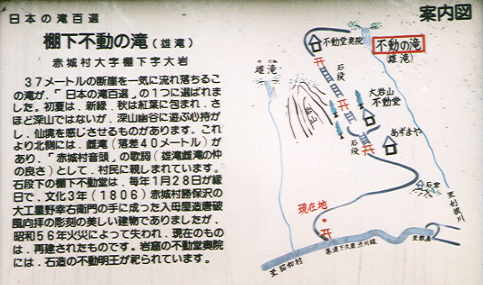 日本の滝百選
棚下不動の滝(雄滝)
赤城村大字棚下字大岩
37メートルの断崖を一気に流れ落ちるこ
の滝が、「日本の滝百選」の1つに選ばれ
ました。初夏は、新緑、秋は紅葉に包まれ、さ
ほど深山ではないが、深山幽谷に遊ぶ心持が
し、仙境を感じさせるものがあります。これ
より北側には、雌滝(落差40メートル)が
あり、「赤城村音頭」の歌詞(雄滝雌滝の仲
の良さ)として、村民に親しまれています。
石段下の棚下不動堂は、毎年1月28日が縁
日で、文化3年(1806)赤城村勝保沢の
大工星野幸右衛門の手に成った入母屋造唐破
風向拝の彫刻の美しい建物でありましたが、
昭和56年火災によって失われ、現在のもの
は、再建されたものです。岩窟の不動堂奥院
には、石造の不動明王が祀られています。
案内図
不動堂奥院
不動の滝
(雄滝)
雌滝
石段
大岩山
不動堂
あずまや
石段
現在地
至昭和村